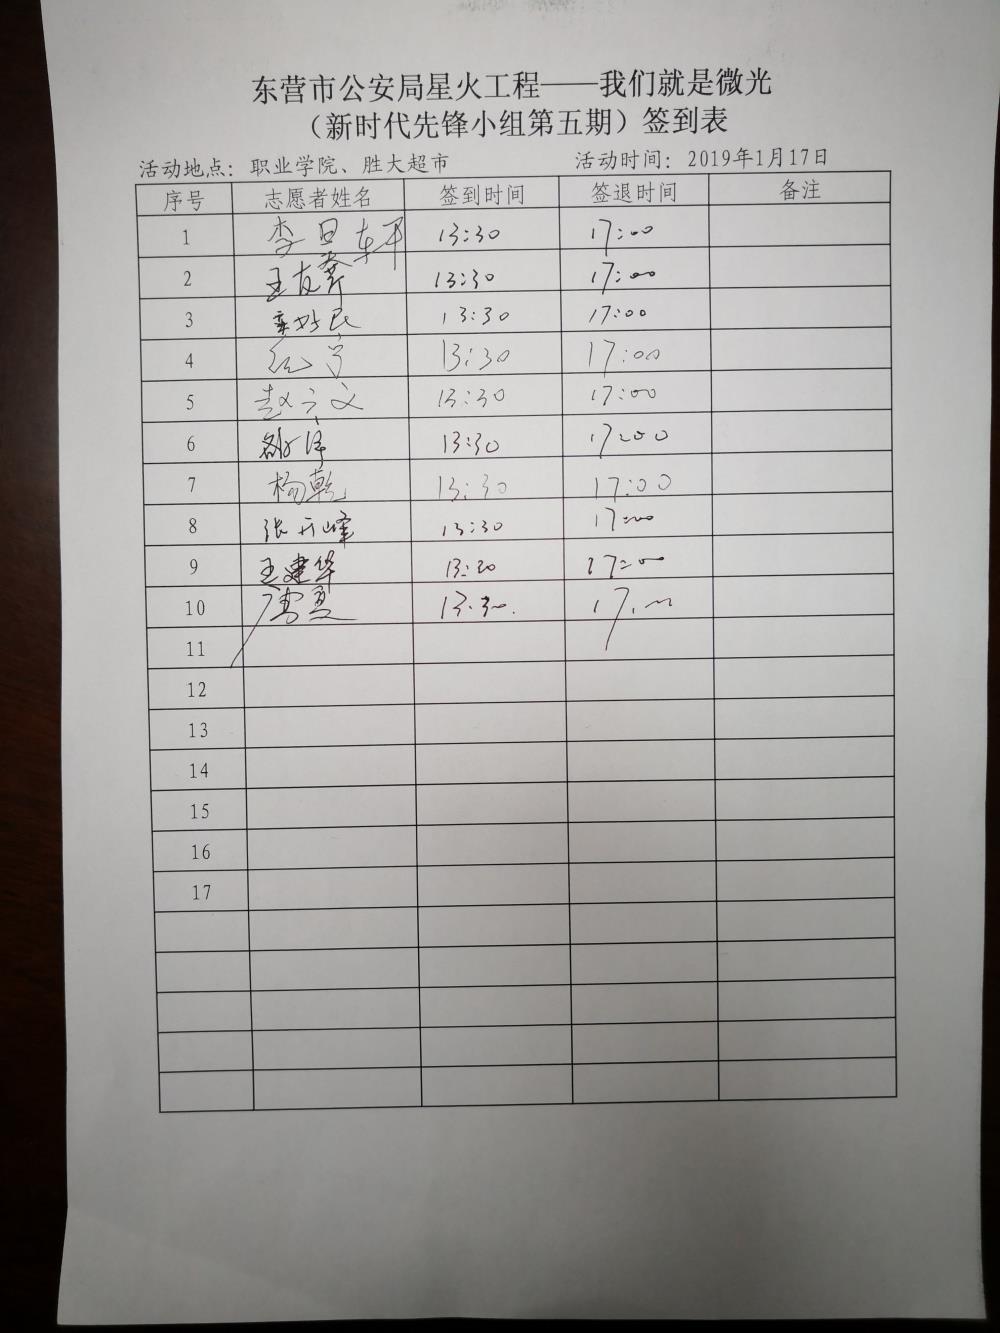 东营市公安局星火工程——我们就是微光
（新时代先锋小组第五期）签到表
活动地点：职业学院、胜大超市 活动时间：2019年1月17日
序号 志愿者姓名 签到时间 签退时间 备注
1 李 轩 13:30 17:00
2 王友 13:30 17:00
3 13:30 17:00
4 13:30 17:00
5 赵 文 13:30 17:00
6 13:30 17:00
7 杨乾 13:30 17:00
8 张开峰 13:30 17:00
9 王建华 13:30 17:00
10 13:30. 17:00
11
12
13
14
15
16
17